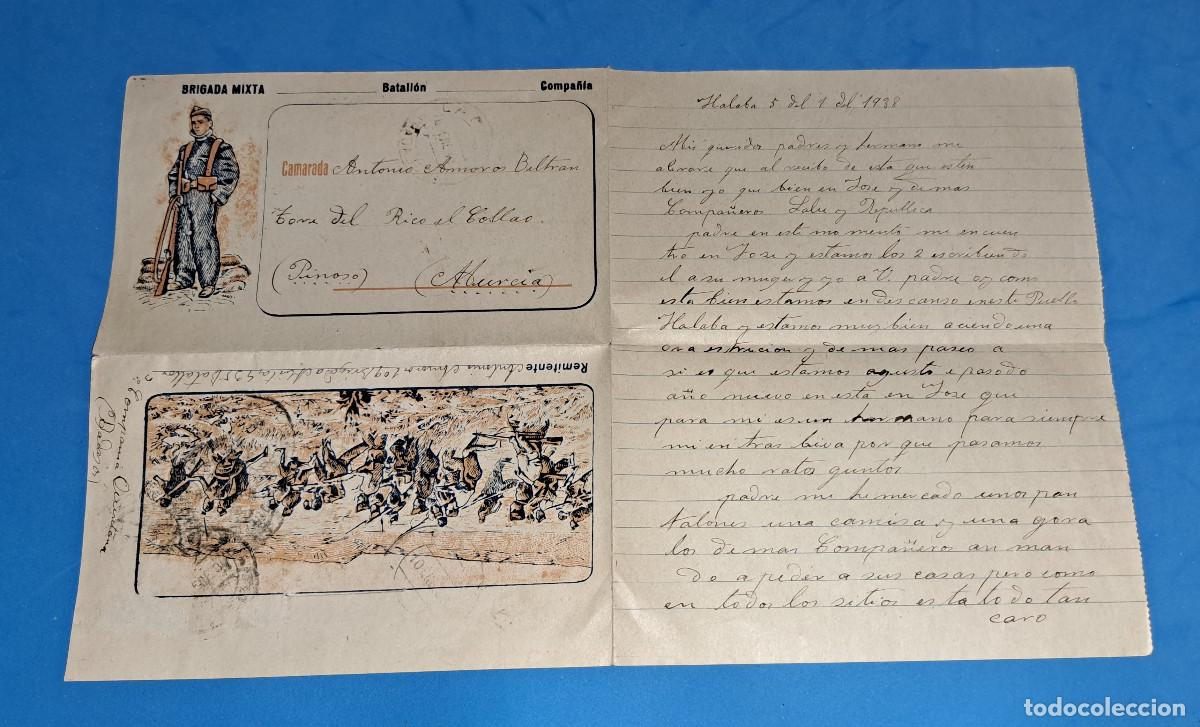 BRIGADA MIXTA Batallón Compañía
Camarada Antonio Amoros Beltran
tore del Rico el Collao.
(Pinoso) (Murcia)
Remitente Antonio Amoros 109 brigada Mista 435 Batallon
3ª Compania Quintana
(Badajoz)
Halaba 5 del 1 del 1938
Mis queridos padres y hermano me
alerare que al recibo de esta que esten
bien yo que bien en Jose y demas
Compañeros Salu y Republica
padre en este momento me encuen
tro en Jose y estamos los 2 escribiendo
el a su muger y yo a V. padre oy com
esta bien estamos en descanso en este Pueblo
Halaba y estamos muy bien aciendo una
ora estrucion y demas paseo a
si es que estamos agusto e pasado
año nuevo en esta en Jose que
para mi es un hermano para siempre
mientras biva por que pasamos
mucho ratos guntos
padre me he mercado unos pan
talones una camisa y una gora
los demas Compañeros an man
do a pedir a sus casas pero como
en todos los sitios esta todo tan
caro
todocoleccion